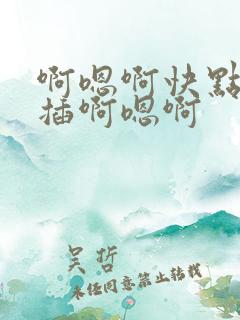 啊嗯啊快點
插啊嗯啊
吴哲
未经同意禁止转载